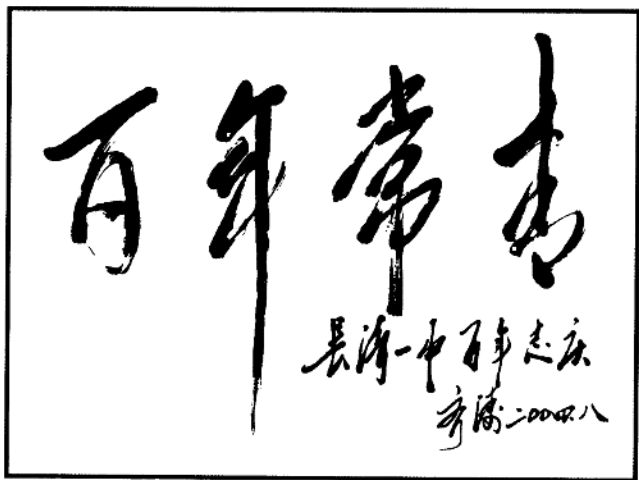 百年常青
长清一中百年志庆
齐涛二〇〇四.八